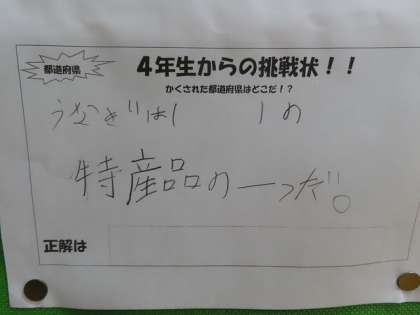 都道府県
4年生からの挑戦状!!
かくされた都道府県はどこだ!?
うなぎは( )の
特産品の一つだ。
正解は